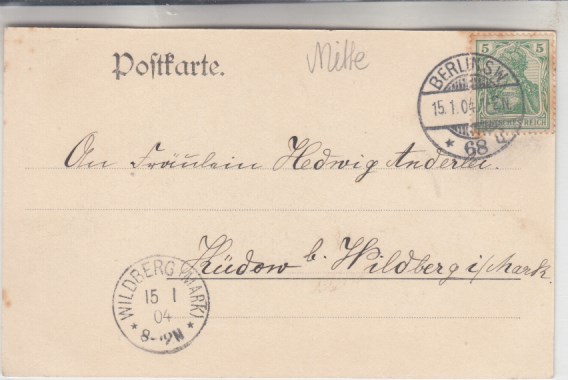 Postkarte.
Mitte
5 5
BERLIN S.W.
15.1.04
* 68
REICH
An Fräulein Hedwig Anderlei.
Küdow b. Wildberg i/Mark.
* WILDBERG (MARK) *
15 1
04
8-12N